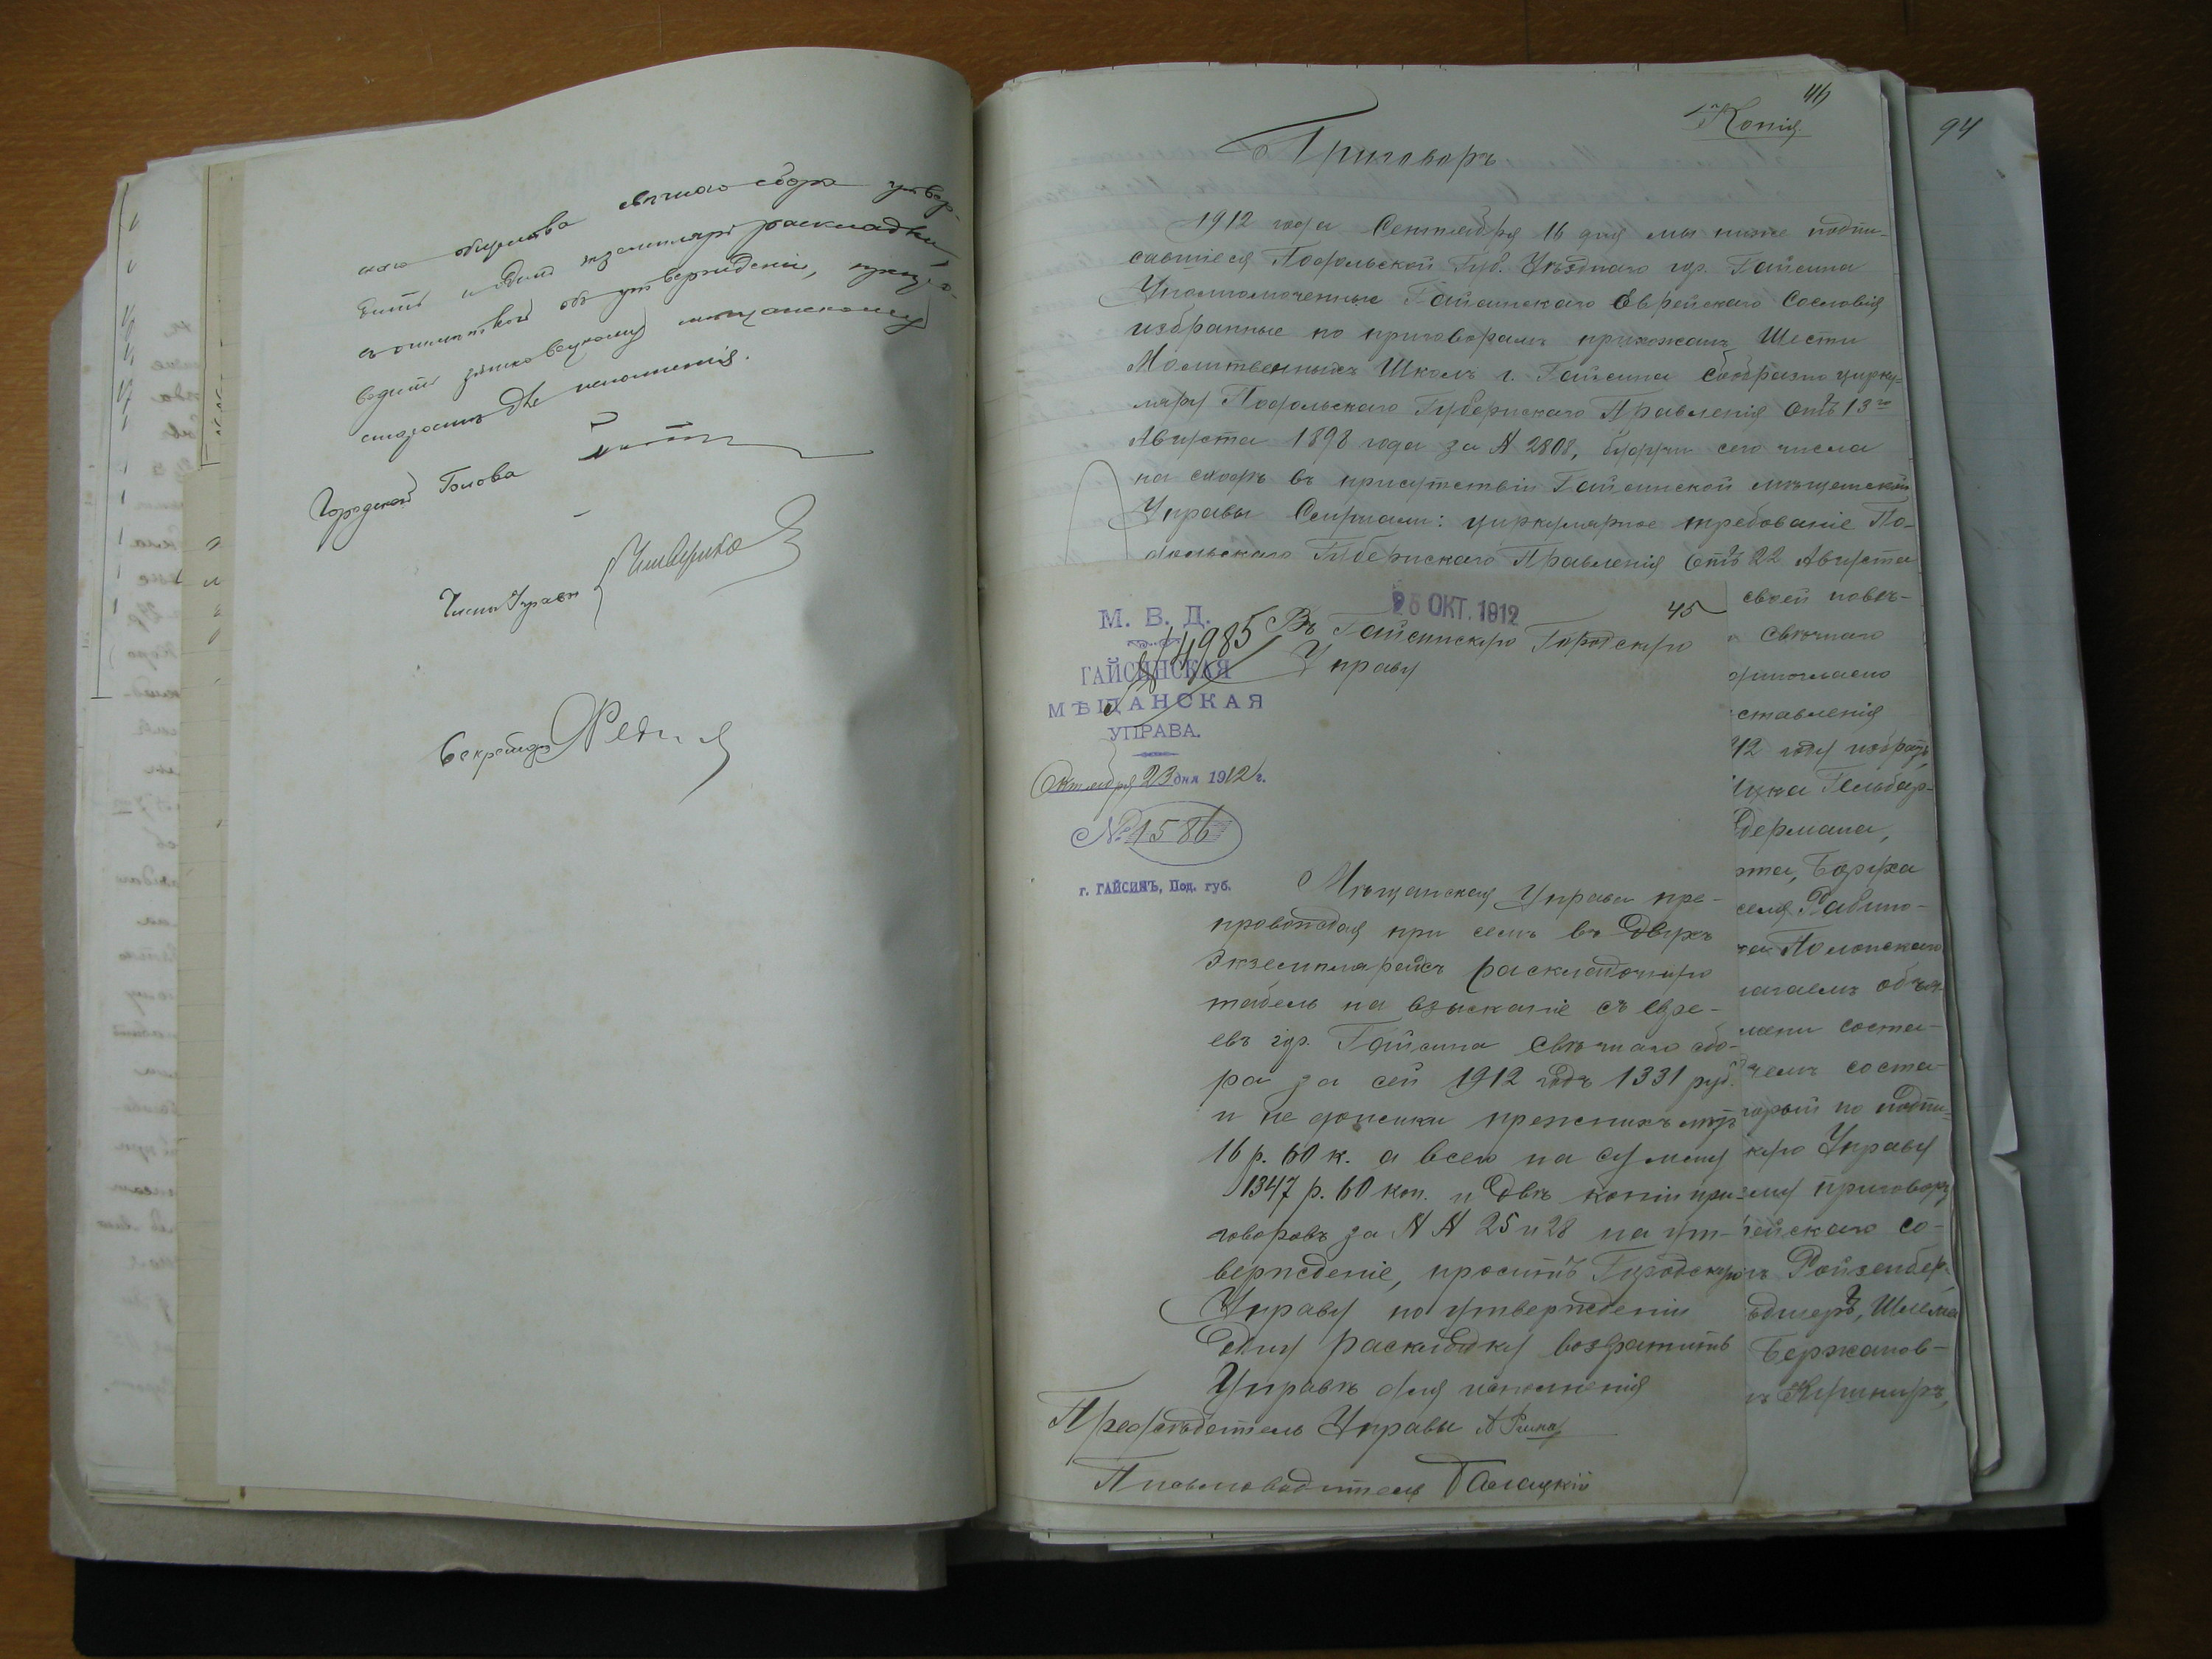 наго общества свѣчнаго сбора утвер-
дить и одинъ экземпляръ раскладки,
съ отмѣткой объ утвержденіи, препро-
водить мѣщанскому
старостѣ для исполненія.
Городской Голова
Членъ Управы
Секретарь
46
Копія
94
Приговоръ
1912 года Сентября 16 дня мы ниже подпи-
савшіеся Подольской Губ. Уѣзднаго гор. Гайсина
Уполномоченные Гайсинскаго Еврейскаго Сословія
избранные по приговорамъ прихожанъ Шести
Молитвенныхъ Школъ г. Гайсина сообразно цирку-
ляру Подольскаго Губернскаго Правленія отъ 13го
Августа 1898 года за № 2808, будучи сего числа
на сходѣ въ присутствіи Гайсинской мѣщанской
Управы Слушали: циркулярное требованіе По-
дольскаго Губернскаго Правленія отъ 22 Августа
своей повѣ-
свѣчнаго
ставленія
12 году избрать
Гельбар-
дермана,
Боруха
Рабино-
Полонскаго
лагаемъ объя-
соста-
чемъ соста-
торый по подпи-
кую Управу
приговору
рейскаго со-
Ройзенбер-
Шлема
Бержанов-
Кушниръ,
М. В. Д.
ГАЙСИНСКАЯ
МѢЩАНСКАЯ
УПРАВА.
Октября 23 дня 1912 г.
№ 1586
г. ГАЙСИНЪ, Под. губ.
4985
25 ОКТ. 1912
45
Въ Гайсинскую Городскую
Управу
Мѣщанская Управа пре-
провождая при семъ въ двухъ
экземплярахъ раскладочную
табель на взысканіе съ евре-
евъ гор. Гайсина свѣчнаго сбо-
ра за сей 1912 годъ 1331 руб.
и недоимки прежнихъ лѣтъ
16 р. 60 к. а всего на сумму
1347 р. 60 коп. и двѣ копіи при-
говоровъ за № № 25 и 28 на ут-
вержденіе, проситъ Городскую
Управу по утвержденіи
одну раскладку возвратить
Управѣ для исполненія
Предсѣдатель Управы
Письмоводитель